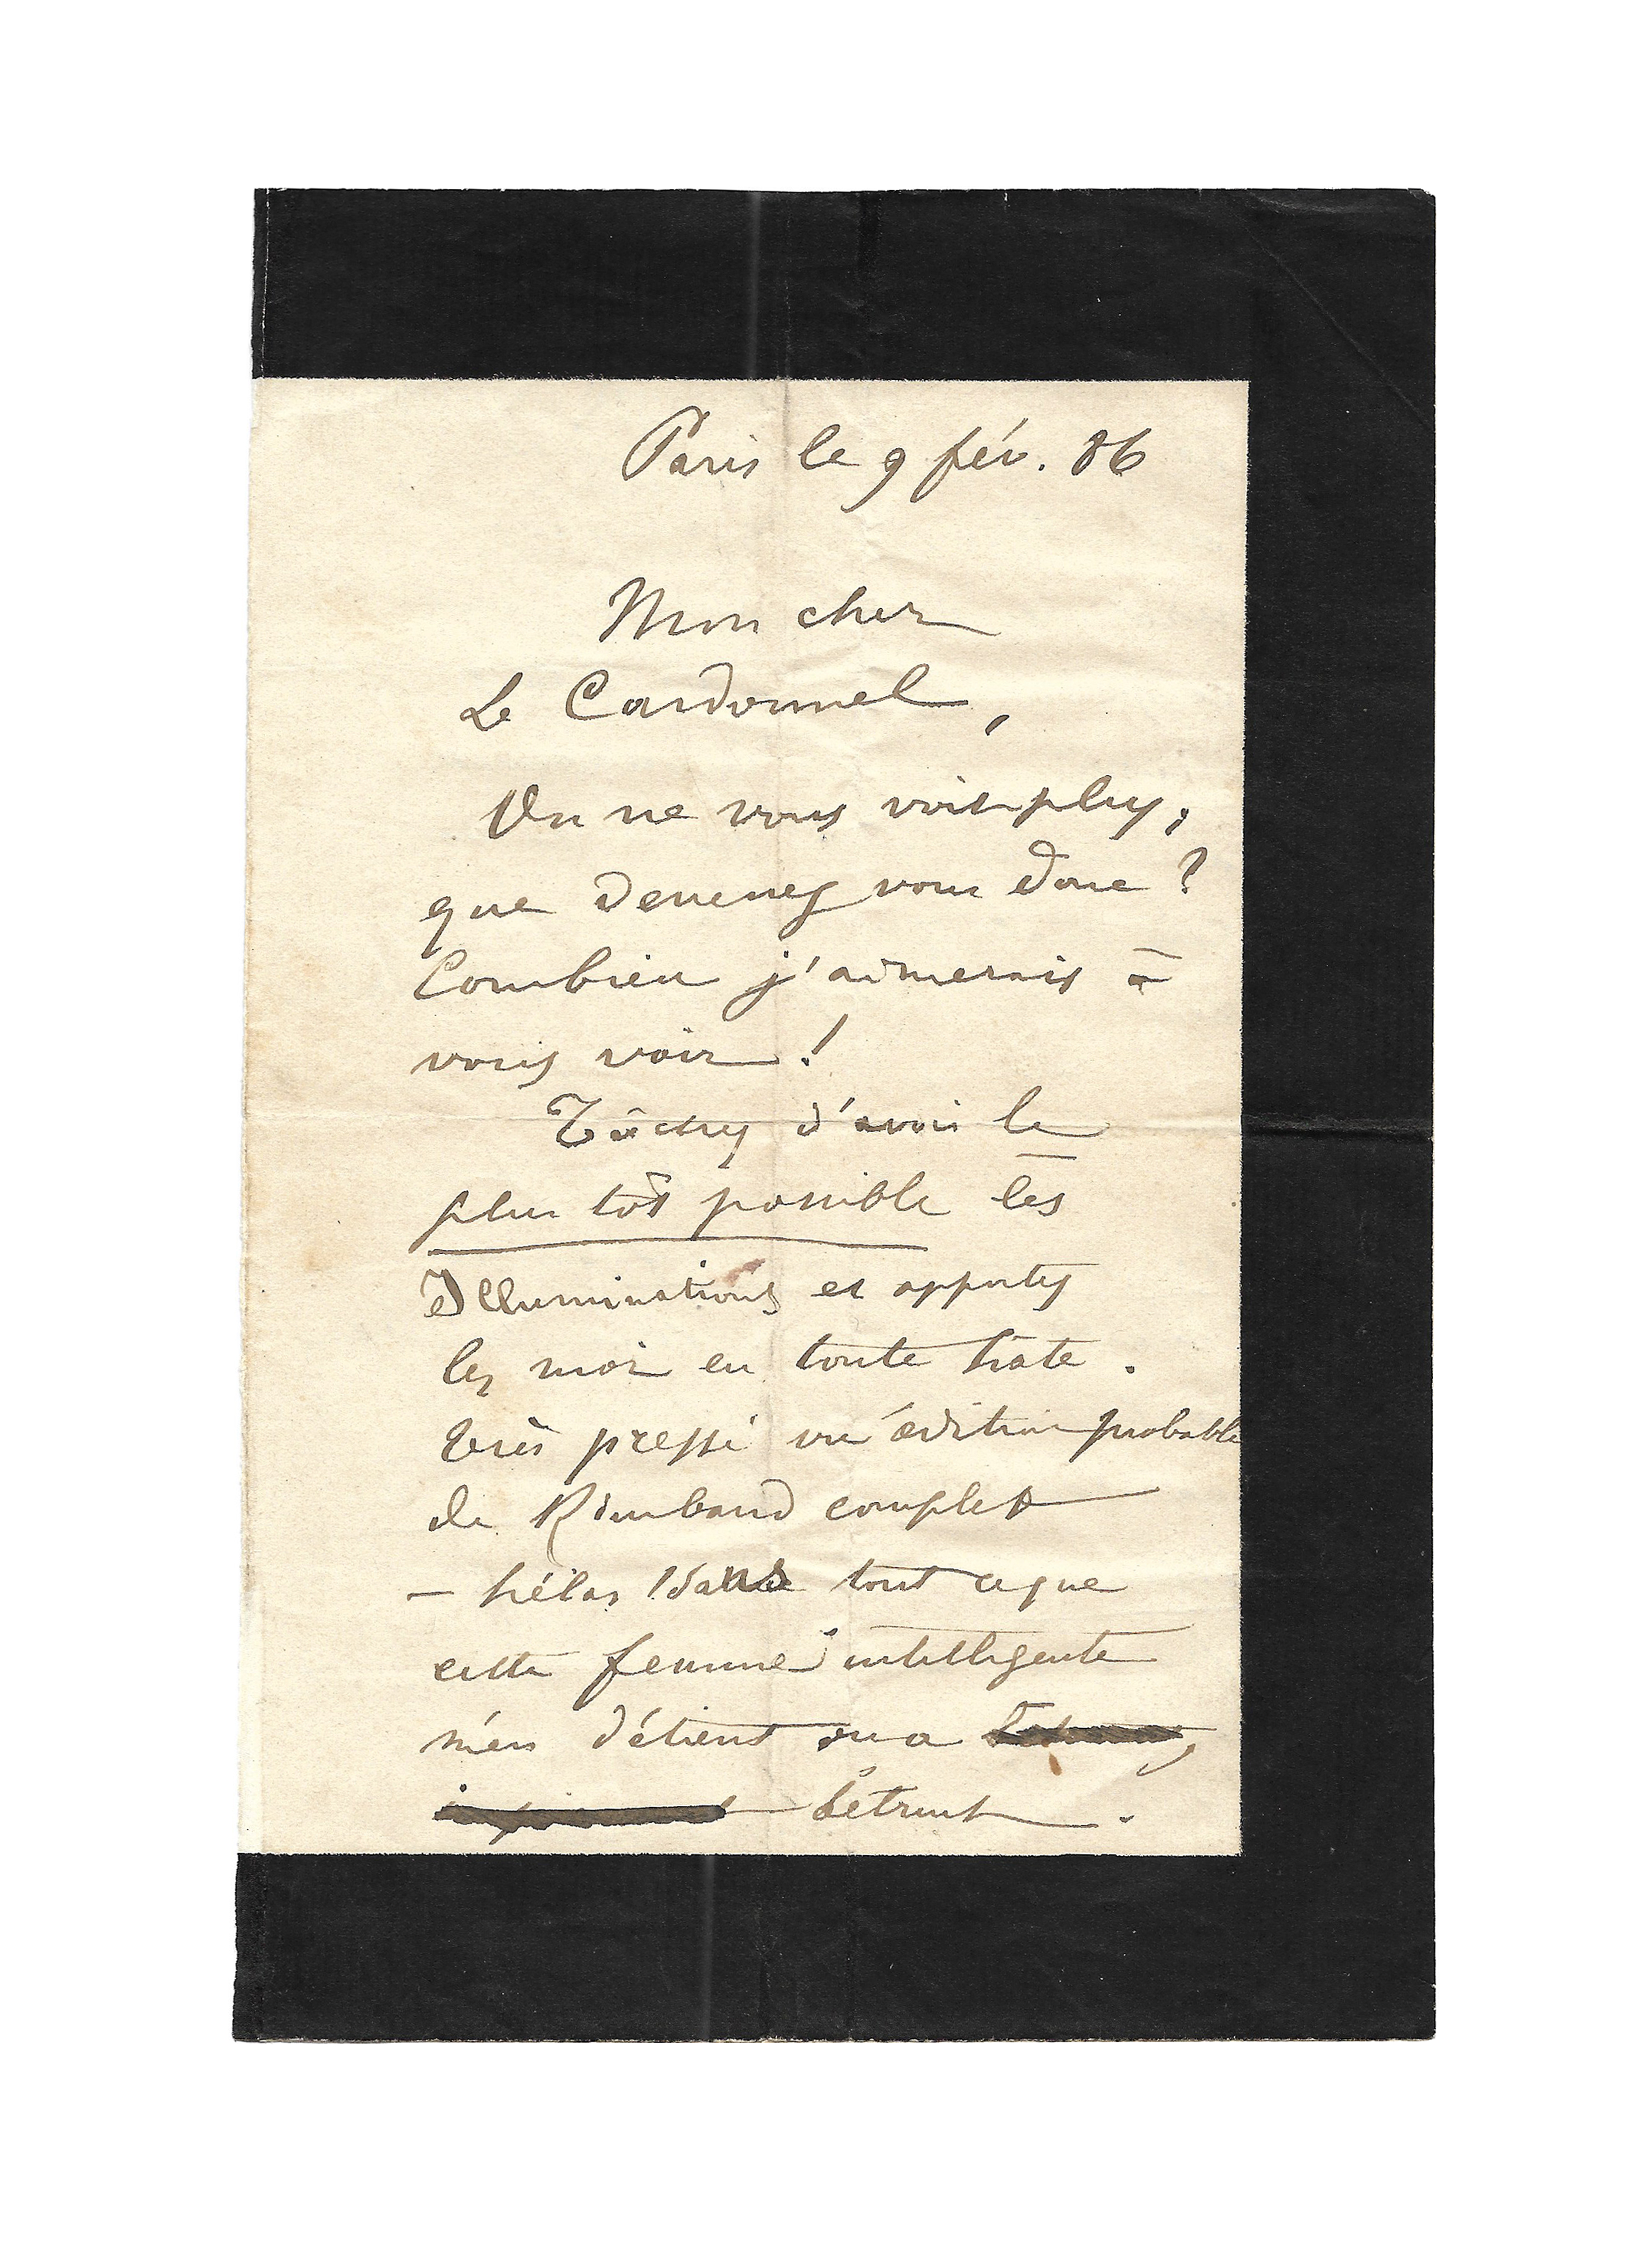 Paris le 9 fév. 86
Mon cher
Le Cardonnel,
On ne vous voit plus,
que devenez vous donc ?
Combien j'aimerais à
vous voir !
Tâchez d'avoir le
plus tôt possible les
Illuminations et apportez
les moi en toute hâte.
Très pressé vu édition probable
de Rimbaud complet
— hélas ! sauf tout ce que
cette femme intelligente
m'en détient ou a
détruit.